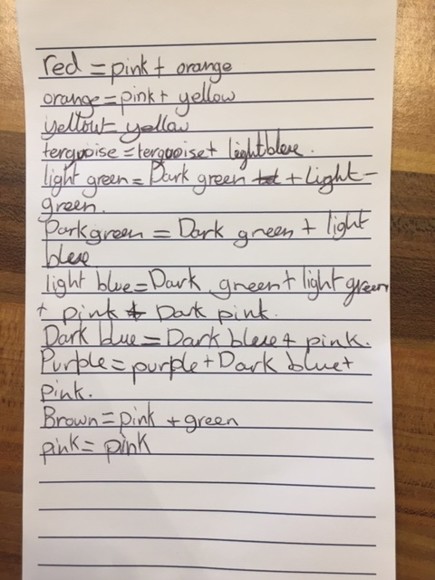 red = pink + orange
orange = pink + yellow
yellow = yellow
terquoise = terquoise + lightblue.
light green = Dark green + Light-
green.
Darkgreen = Dark green + light
blue
light blue = Dark green + light green
+ pink + Dark pink.
Dark blue = Dark bleue + pink.
Purple = purple + Dark blue +
pink.
Brown = pink + green
pink = pink